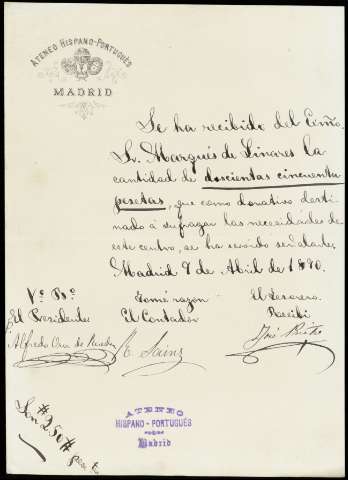 ATENEO HISPANO-PORTUGUÉS
MADRID
Se ha recibido del Exmo.
Sr. Marqués de Linares la
cantidad de doscientas cincuenta
pesetas, que como donativo desti-
nado á sufragar las necesidades de
este centro, se ha servido
Madrid 9 de Abril de 1890.
Vº. Bº.
El Presidente
Tomé razón
El Contador
El Tesorero
Recibí
Alfredo
E. Sainz
José
Son #250# pesetas
ATENEO
HISPANO-PORTUGUÉS
Madrid